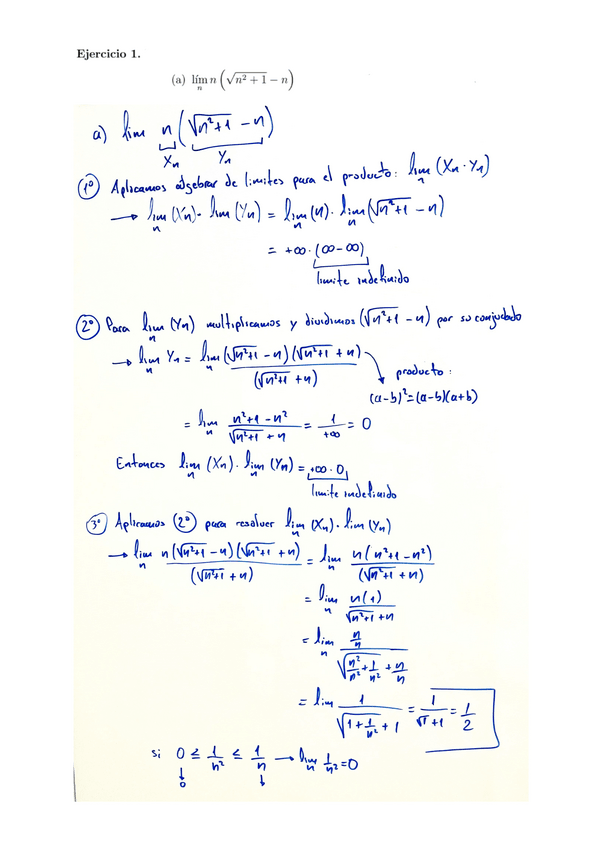 Ejercicio 1.
(a) lím_n n(√(n²+1) − n)
a) lim n(√(n²+1) − n)
Xn Yn
1º Aplicamos álgebra de limites para el producto: lim_n (Xn · Yn)
→ lim_n (Xn) · lim (Yn) = lim_n (n) · lim_n (√(n²+1) − n)
= +∞ · (∞−∞)
limite indefinido
2º Para lim_n (Yn) multiplicamos y dividimos (√(n²+1) − n) por su conjudado
→ lim_n Yn = lim_n (√(n²+1) − n)(√(n²+1) + n) / (√(n²+1) + n)
producto:
(a−b)²=(a−b)(a+b)
= lim_n (n²+1−n²) / (√(n²+1) + n) = 1/+∞ = 0
Entonces lim_n (Xn) · lim_n (Yn) = +∞ · 0
limite indefinido
3º Aplicamos 2º para resolver lim_n (Xn) · lim (Yn)
→ lim_n n(√(n²+1) − n)(√(n²+1) + n) / (√(n²+1) + n) = lim_n n(n²+1−n²) / (√(n²+1) + n)
= lim_n n(1) / (√(n²+1) + n)
= lim_n (n/n) / (√(n²/n² + 1/n²) + n/n)
= lim 1 / (√(1 + 1/n²) + 1) = 1/(√1 + 1) = 1/2
si 0 ≤ 1/n² ≤ 1/n → lim_n 1/n² = 0
↓ ↓
0